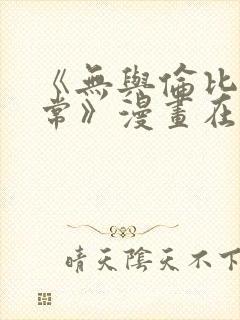 《無與倫比
常》漫畫在
晴天陰天不下